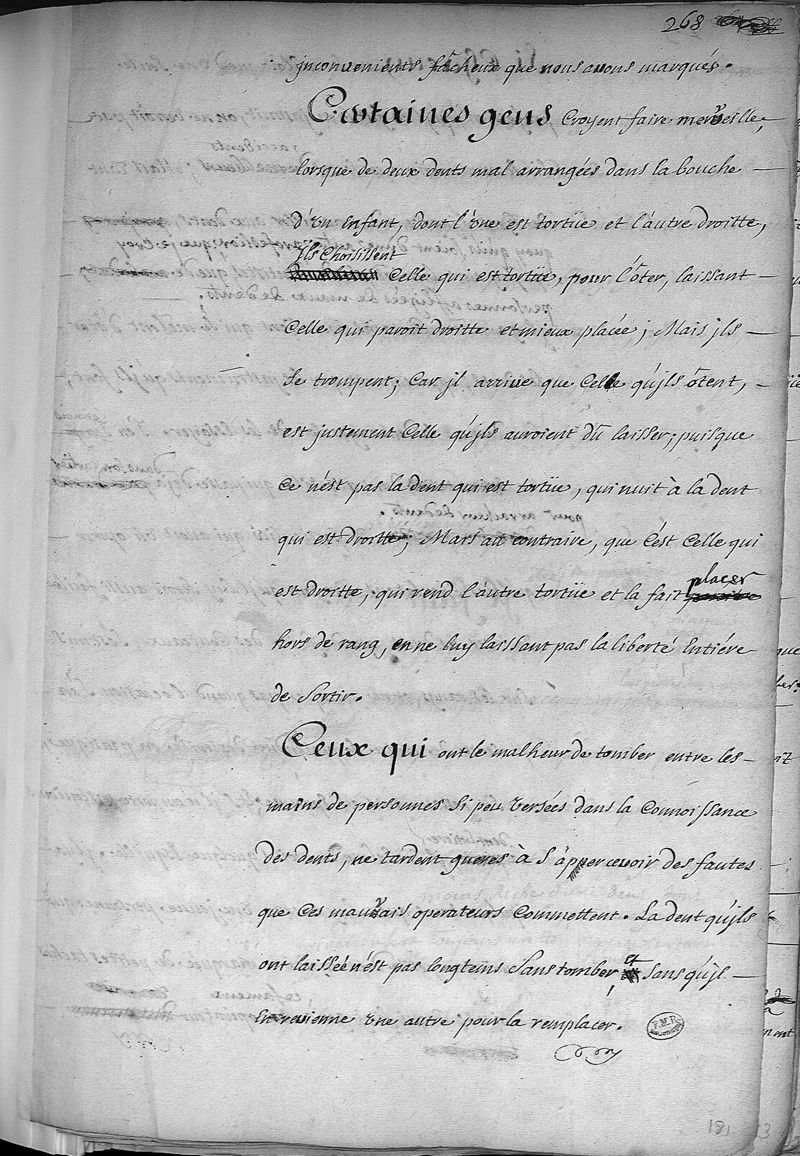 268
jnconvenients fâcheux que nous avons marqués.
Certaines gens Croyent faire merveille,
lorsque de deux dents mal arrangées dans la bouche
d'un Enfant, dont l'une est tortüe et l'autre droitte,
Ils Choisissent
Celle qui est tortüe, pour l'ôter, laissant
Celle qui paroit droitte et mieux placée; Mais jls
se trompent; Car jl arrive que Celle qu'jls ôtent,
est justement Celle qu'jls auroient dû laisser; puisque
Ce n'est pas la dent qui est tortüe, qui nuit à la dent
qui est droitte; Mais au contraire, que C'est Celle qui
placer
est droitte, qui rend l'autre tortüe et la fait
hors de rang, en ne luy laissant pas la liberté Entiére
de Sortir.
Ceux qui ont le malheur de tomber entre les
mains de personnes si peu versées dans la Connoissance
des dents, ne tardent gueres à s'appercevoir des fautes
que Ces mauvais operateurs Commettent. La dent qu'jls
et
ont laissée n'est pas longtems Sans tomber, Sans qu'jl
En revienne une autre pour la remplacer.
181